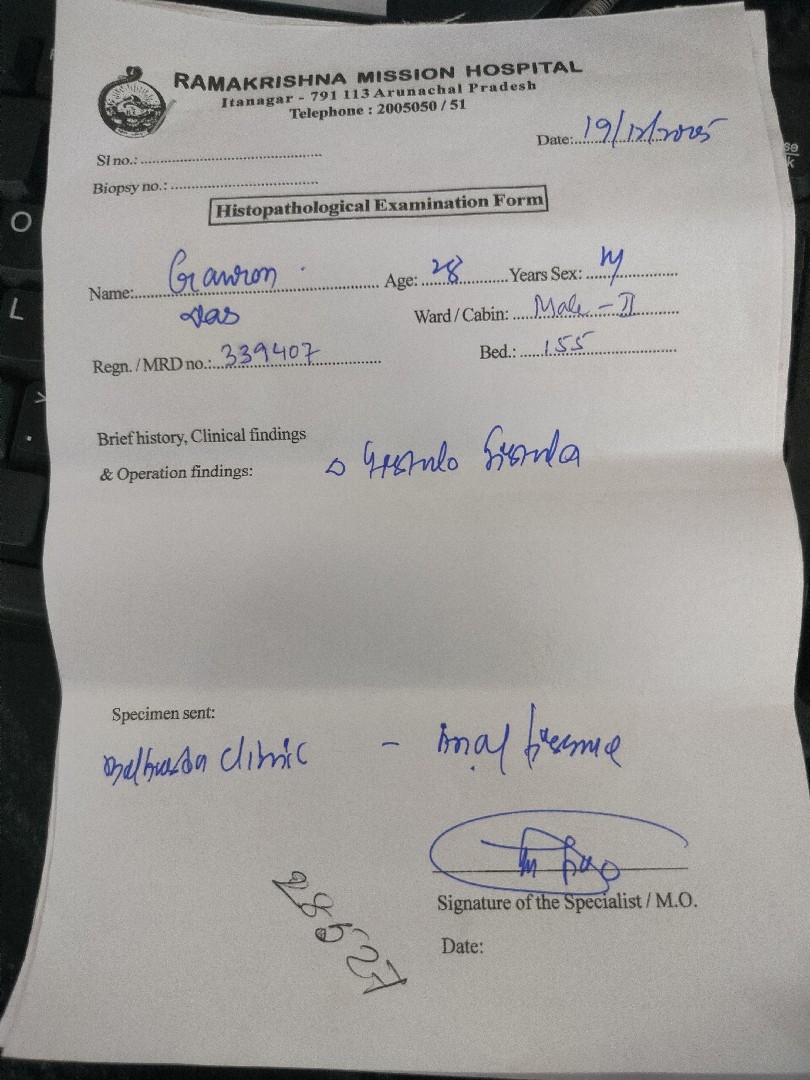 RAMAKRISHNA MISSION HOSPITAL
Itanagar - 791 113 Arunachal Pradesh
Telephone : 2005050 / 51
Date: 19/12/2025
Sl no.:
Biopsy no.:
Histopathological Examination Form
Name: Age: 28 Years Sex: M
Das Ward / Cabin: Male - II
Regn. / MRD no.: 339407 Bed.: 155
Brief history, Clinical findings
& Operation findings:
Specimen sent:
clinic - anal
Signature of the Specialist / M.O.
Date:
28527